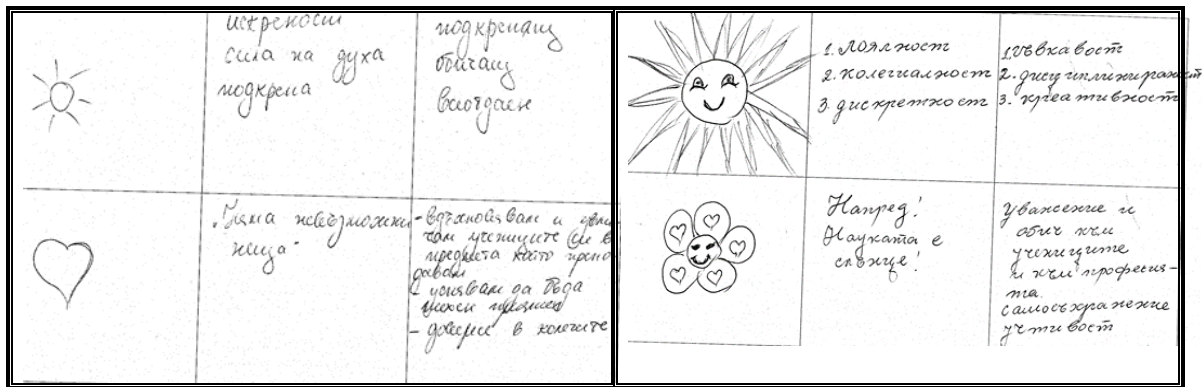 искреност
сила на духа
подкрепа
подкрепащ
обичащ
всеотдаен
„Няма невъзможни
неща“
- вдъхновявам и увли
чам учениците си в
предмета който препо
давам
- успявам да бъда
- доверие в колегите
1. Лоялност
2. колегиалност
3. дискретност
1. гъвкавост
2. дисциплинираност
3. креативност
Напред!
Науката е
слънце!
Уважение и
обич към
учениците
и към професия-
та.
самосъхранение
учтивост